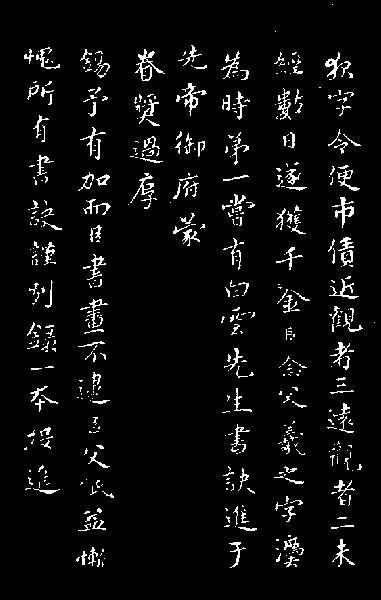 狀字令便市債近觀者三遠觀者二未
經數日遂獲千金臣念父羲之字法
為時第一嘗有白雲先生書訣進于
先帝御府蒙
眷獎過厚
錫予有加而臣書畫不逮臣父祗益慚
愧所有書訣謹別錄一本投進